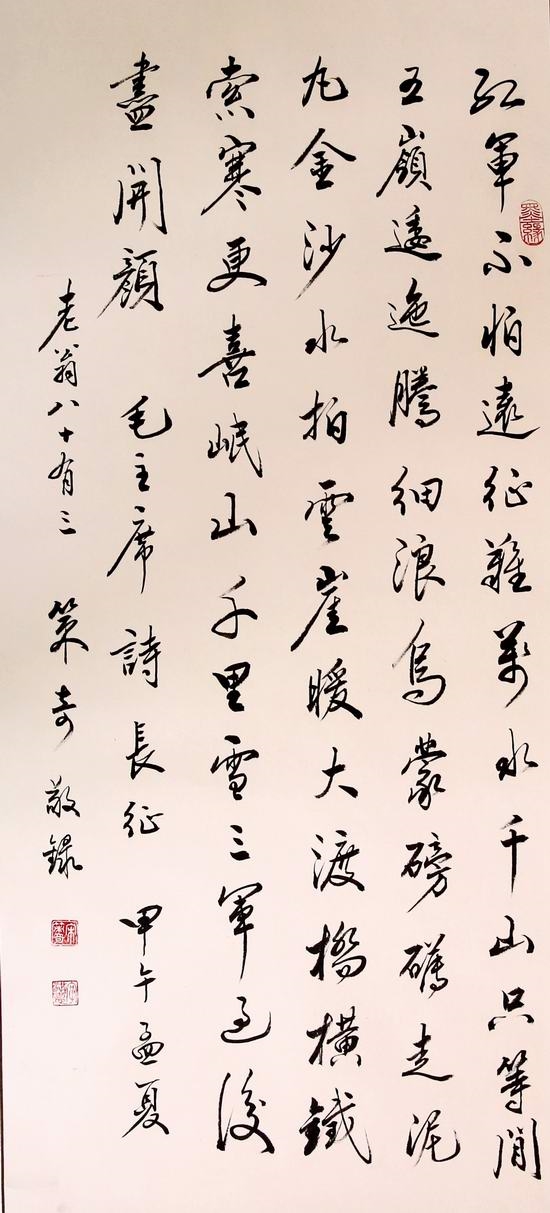 紅軍不怕遠征難萬水千山只等閒
五嶺逶迤騰細浪烏蒙磅礴走泥
丸金沙水拍雲崖暖大渡橋橫鐵
索寒更喜岷山千里雪三軍過後
盡開顏 毛主席詩長征 甲午孟夏
老翁八十有三 策奇敬錄